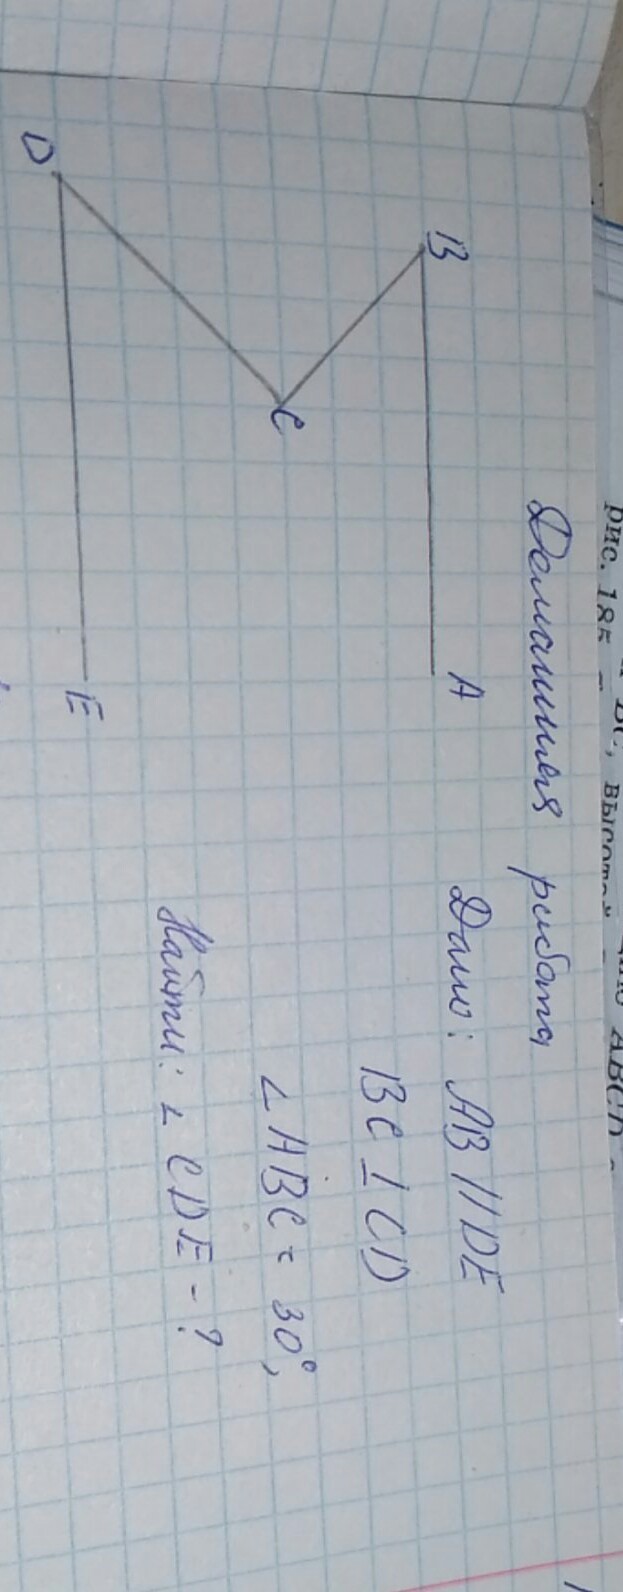 рис. 185
BC, высотой
ABCD
Домашняя работа
Дано: AB // DE
BC ⊥ CD
∠ABC = 30°,
Найти: ∠CDE - ?
A
B
C
D
E